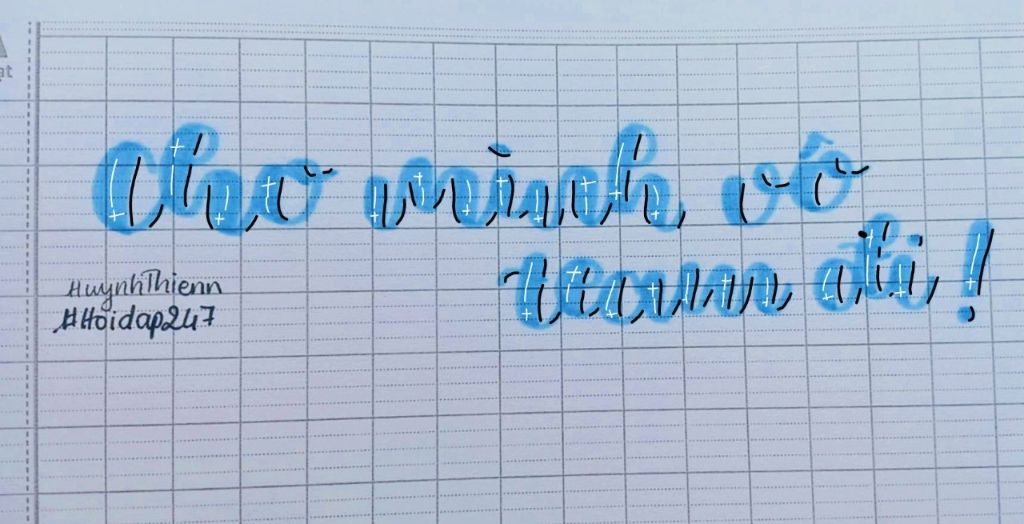 Cho mình vô
team đi!
HuynhThienn
#Hoidap247